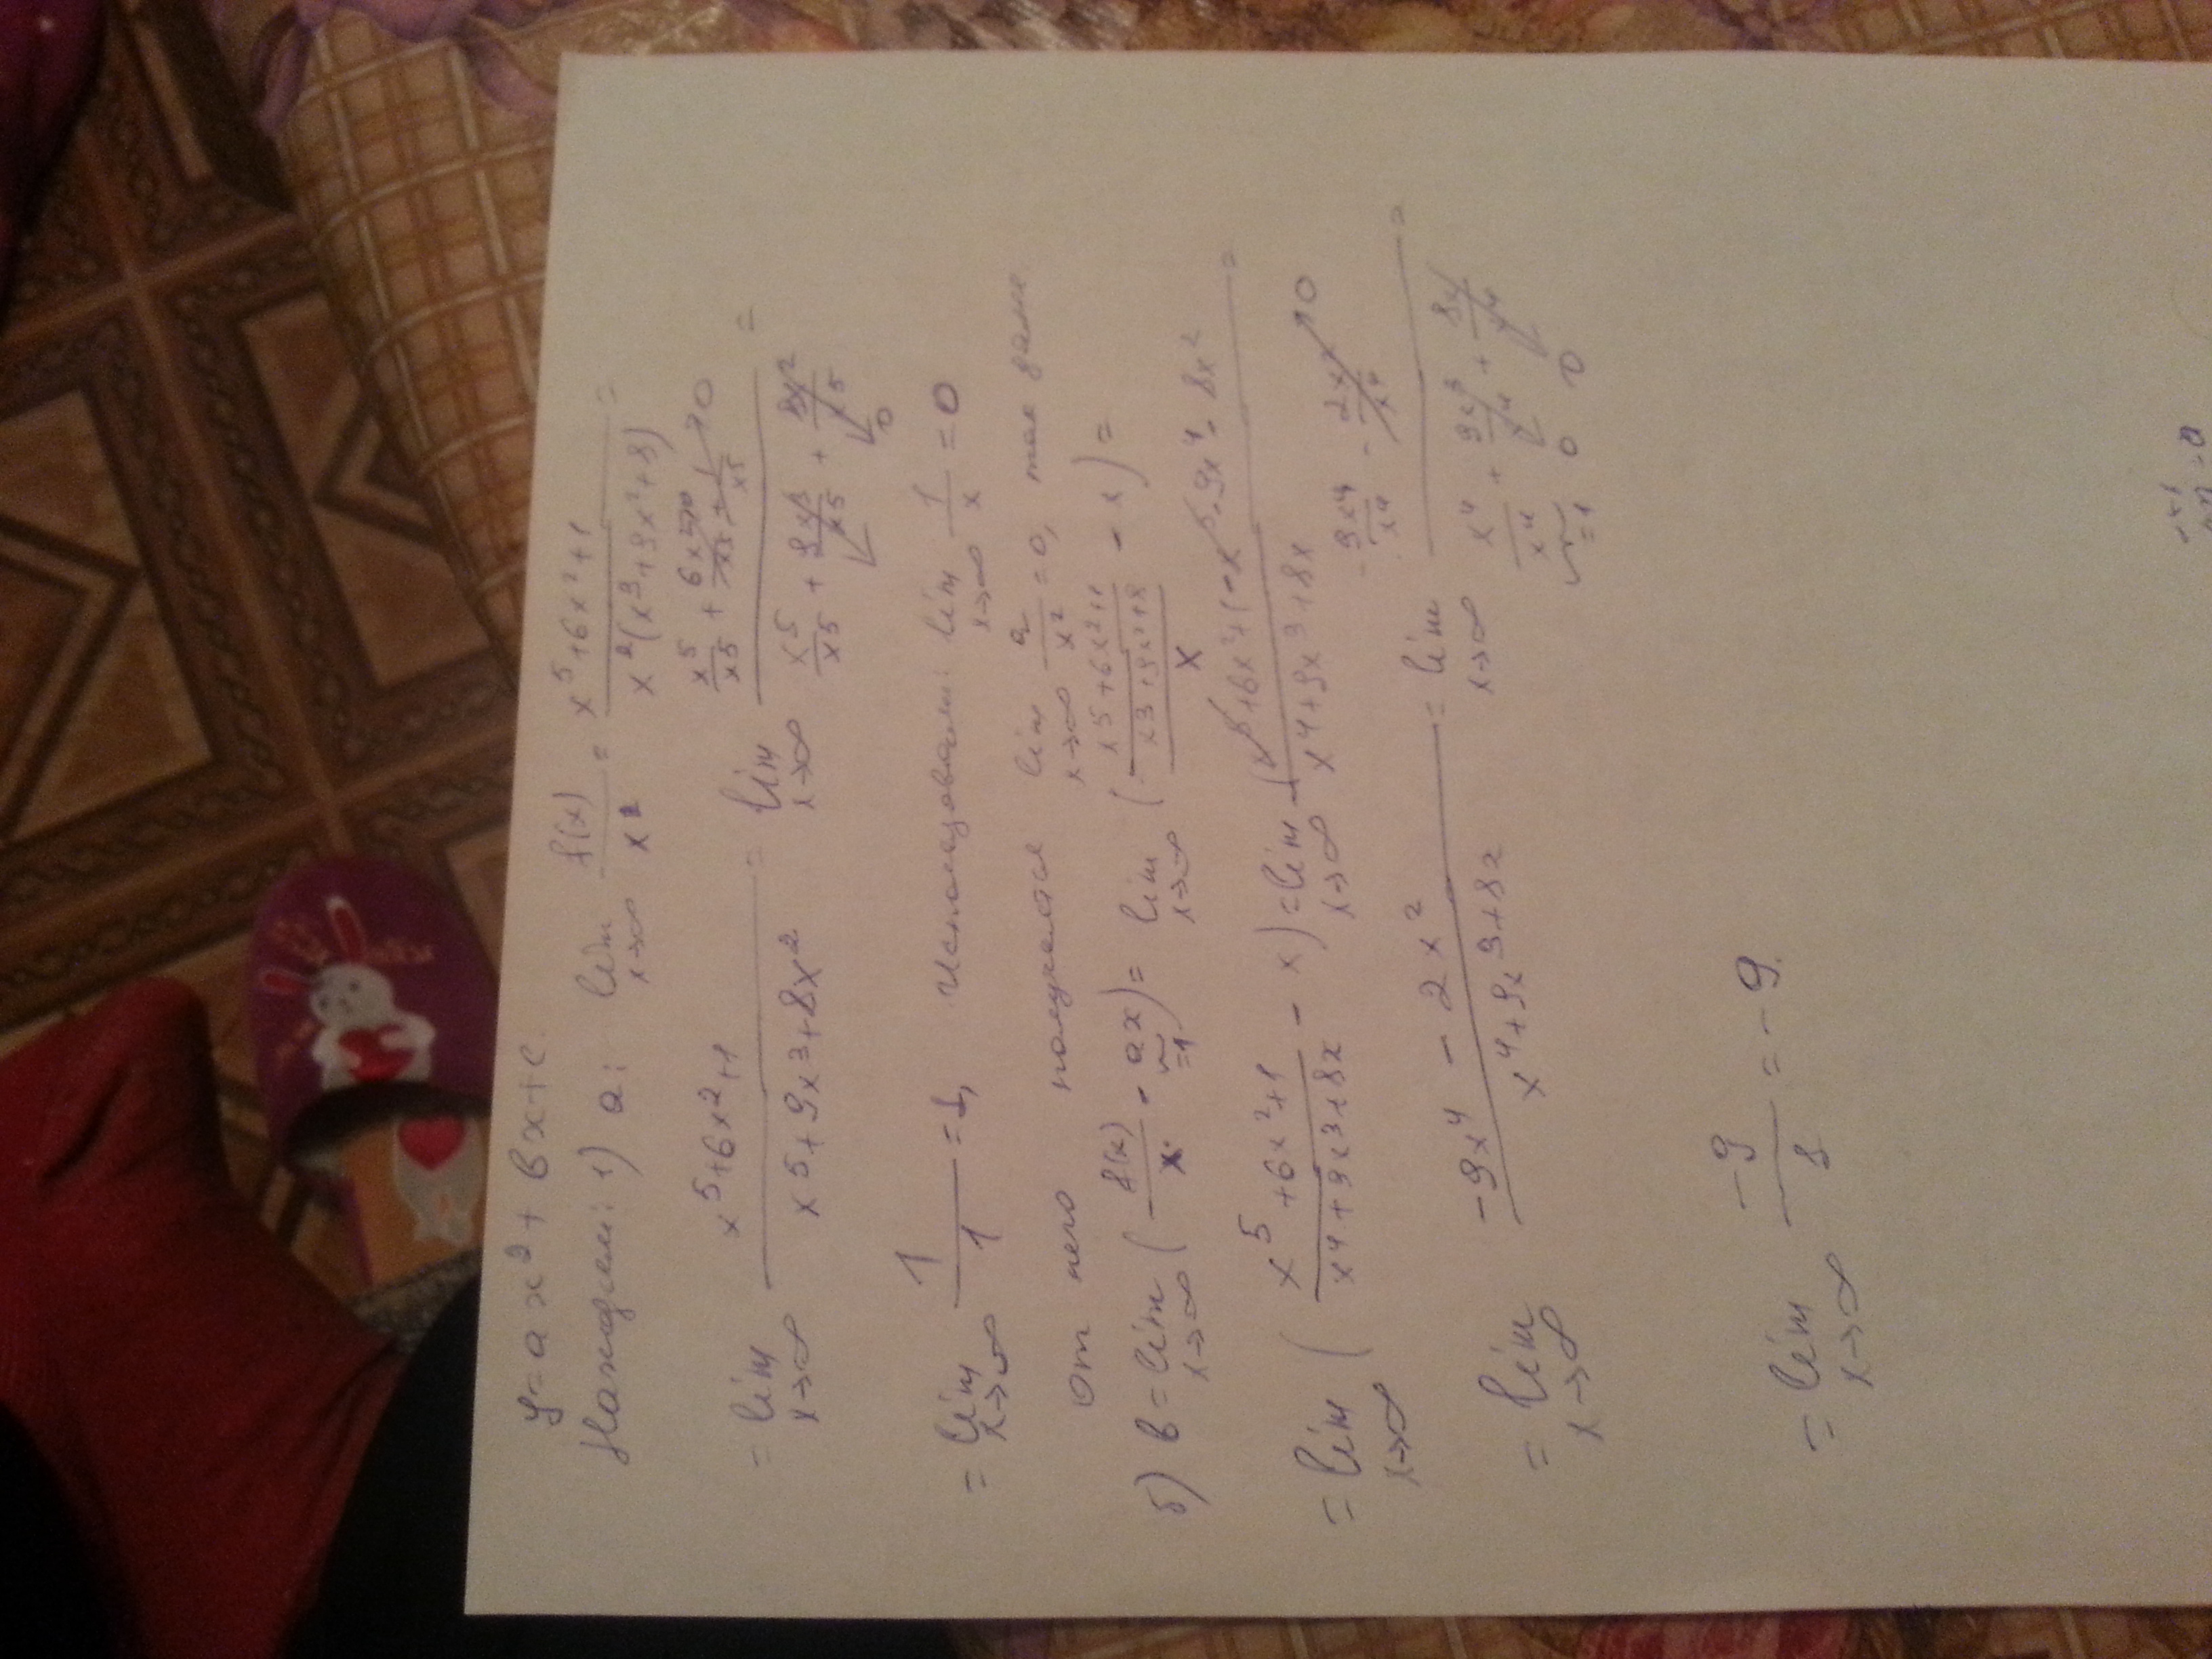 y = ax² + bx + c.
Находим: 1) a: lim x→∞ f(x)/x² = (x⁵+6x²+1)/(x²(x³+9x²+8)) =
= lim x→∞ (x⁵+6x²+1)/(x⁵+9x³+8x²) = lim x→∞ (x⁵/x⁵ + 6x²/x⁵ + 1/x⁵)/(x⁵/x⁵ + 9x³/x⁵ + 8x²/x⁵) =
= lim x→∞ 1/1 = 1, Использовали: lim x→∞ 1/x = 0
От него получается lim x→∞ a/x² = 0, так далее
б) b = lim x→∞ (f(x)/x - ax) = lim x→∞ ((x⁵+6x²+1)/(x³+9x²+8)/x - x) =
= lim x→∞ ((x⁵+6x²+1)/(x⁴+9x³+8x) - x) = lim x→∞ (x⁵+6x²+1-x⁵-9x⁴-8x²)/(x⁴+9x³+8x) =
= lim x→∞ (-9x⁴ - 2x²)/(x⁴+9x³+8x) = lim x→∞ (-9x⁴/x⁴ - 2x²/x⁴)/(x⁴/x⁴ + 9x³/x⁴ + 8x/x⁴) =
= lim x→∞ -9/1 = -9.